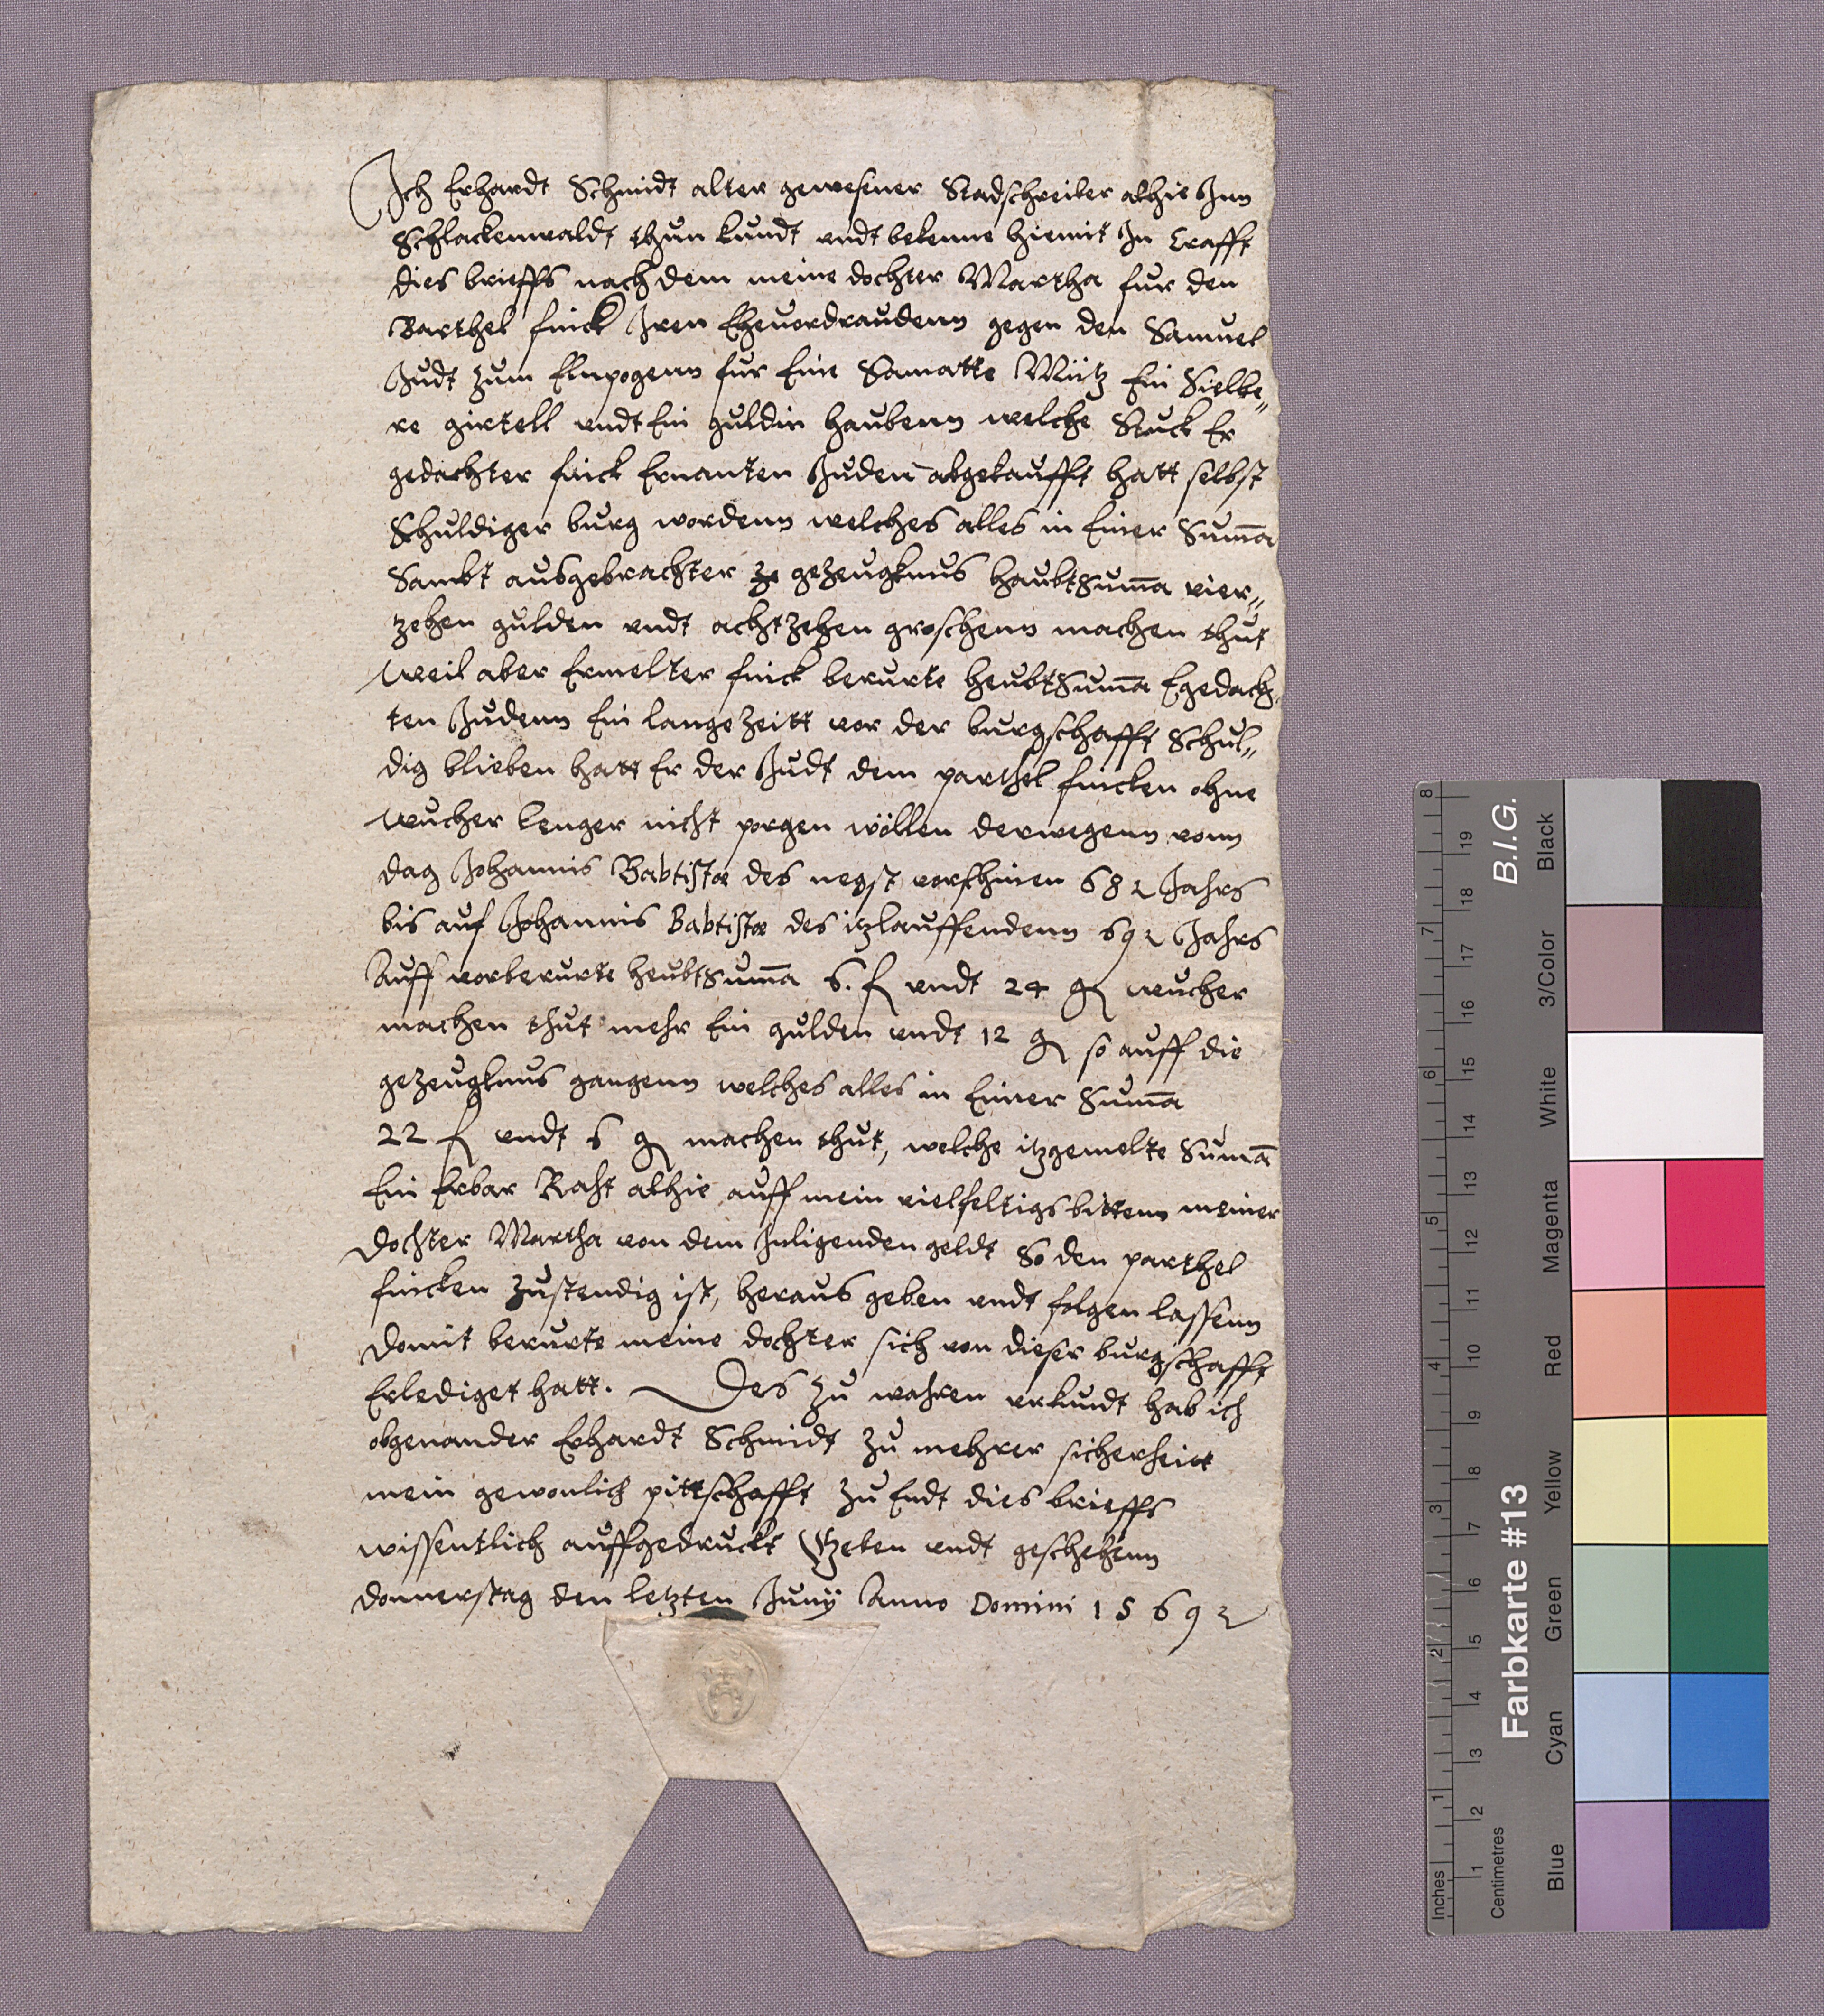 Ich Erhardt Schmidt alter gewesener Stadschreiber alhie Inn
Schlackenwaldt thun kundt undt bekenne hiemit In Crafft
dies brieffs nach dem meine dochter Martha fur den
Barthel finck Iren Ehevordraudenn gegen den Samuel
Judt zum Elnpogenn fur Eine Samatte Mütz Ein Sielbe„
re girtell undt Ein guldin haubenn welche Stuck Er
gedachter finck Ernanten Juden abgekaufft hatt selbst
Schuldiger burg wordenn welches alles in Einer Suma
Sambt ausgebrachter ze gezeugknus haubtsuma vier„
zehen gulden undt achtzehen groschenn machen thut
Weil aber Ermelter finck berurte heubtsuma Egedach
ten Judenn Ein lange zeitt vor der burgschafft Schul„
dig blieben hatt Er der Judt dem parthel fincken ohne
wucher lenger nicht porgen wöllen derwegenn vonn
dag Johannis Babtistae des negst vorschinen 68 Jahrs
bis auf Johannis Babtistae des itzlauffendenn 69 Jahrs
Auff vorberurte heubtsuma 6. f undt 24 g wucher
machen thut mehr Ein gulden undt 12 g so auff die
gezeugknus gangenn welches alles in Einer Suma
22 f undt 6 g machen thut, welche itzgemelte Suma
Ein Erbar Raht alhie auff mein vielfeltigs bittenn meiner
dochter Martha von dem Inligenden geldt So den parthel
fincken zustendig ist, heraus geben undt folgen lassenn
domit berurte meine dochter sich von dieser burgschafft
Erlediget hatt. Des zu wahren urkundt hab ich
obgenander Erhardt Schmidt zu mehrer sicherheitt
mein gewonlich pittschafft zu Endt dies brieffs
wissentlich auffgedruckt Geben undt geschehenn
donnerstag den letzten Juny Anno Domini 1569
8
7
6
5
4
3
2
1
Inches
19
18
17
16
15
14
13
12
11
10
9
8
7
6
5
4
3
2
1
Centimetres
B.I.G.
Farbkarte #13
Black
3/Color
White
Magenta
Red
Yellow
Green
Cyan
Blue